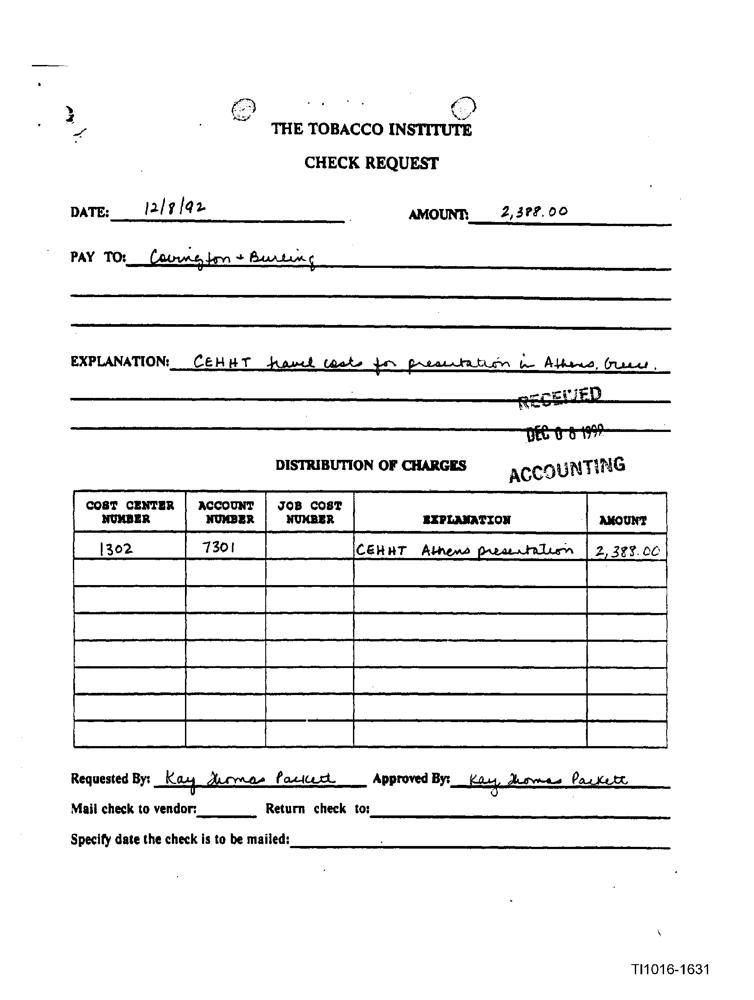 THE TOBACCO INSTITUTE
CHECK REQUEST
DATE: 12/8/92 AMOUNT: 2,388.00
PAY TO: Covington + Burling
EXPLANATION: CEHHT travel costs for presentation in Athens, Greece.
RECEIVED
DEC 08 1992
DISTRIBUTION OF CHARGES
ACCOUNTING
COST CENTER NUMBER ACCOUNT NUMBER JOB COST NUMBER EXPLANATION AMOUNT
1302 7301 CEHHT Athens presentation 2,388.00
Requested By: Kay Thomas Packett Approved By: Kay Thomas Packett
Mail check to vendor: Return check to:
Specify date the check is to be mailed:
TI1016-1631